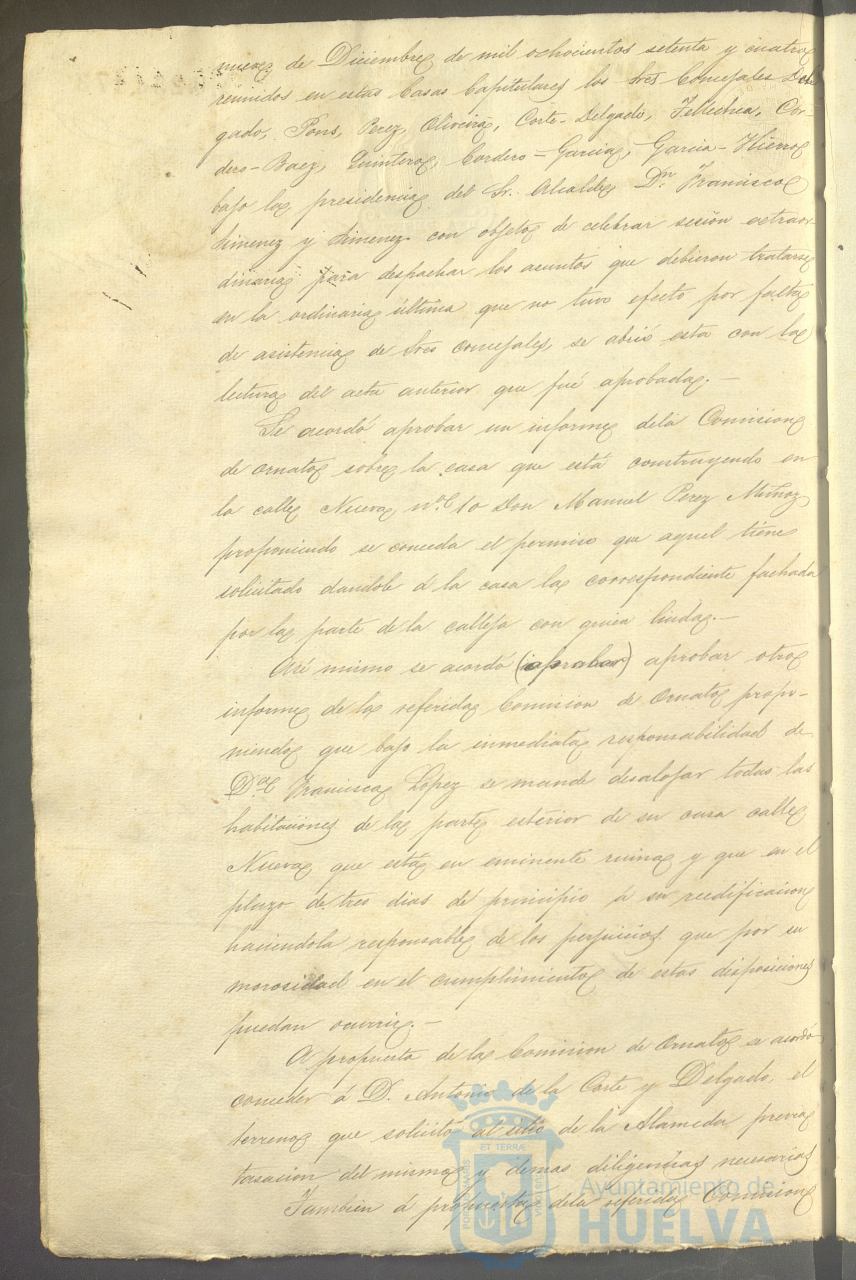 nueve de Diciembre de mil ochocientos setenta y cuatro
reunidos en estas Casas Capitulares los Sres Concejales Del
gado, Pons, Perez, Oliveira, Corte-Delgado, Tellechea, Cor-
dero-Baez, Quintero, Cordero-Garcia, Garcia-Hierro
bajo la presidencia del Sr. Alcalde Dn Francisco
Jimenez y Jimenez con objeto de celebrar sesion extraor
dinaria para despachar los asuntos que debieron tratarse
en la ordinaria última que no tuvo efecto por falta
de asistencia de Sres concejales, se abrió esta con la
lectura del acta anterior que fué aprobada.—
Se acordó aprobar un informe dela Comision
de ornato sobre la casa que está construyendo en
la calle Nueva no. 10 Don Manuel Perez Muñoz
proponiendo se conceda el permiso que aquel tiene
solicitado dandole á la casa la correspondiente fachada
por la parte de la calleja con quien linda.—
Asi mismo se acordó (aprobar) aprobar otro
informe de la referida Comision de Ornato propo-
niendo que bajo la inmediata responsabilidad de
Da. Francisca Lopez se mande desalojar todas las
habitaciones de la parte esterior de su casa calle
Nueva que está en eminente ruina y que en el
plazo de tres dias dé principio á su reedificacion
haciendola responsable de los perjuicios que por su
morosidad en el cumplimiento de estas disposiciones
puedan ocurrir.—
A propuesta de la Comision de Ornato se acordó
conceder á D. Antonio de la Corte y Delgado, el
terreno que solicitó al sitio de la Alameda previa
tasacion del mismo y demas diligencias necesarias
Tambien á propuesta dela referida Comision
ET TERRÆ
PORTUS MARIS
Ayuntamiento de
HUELVA